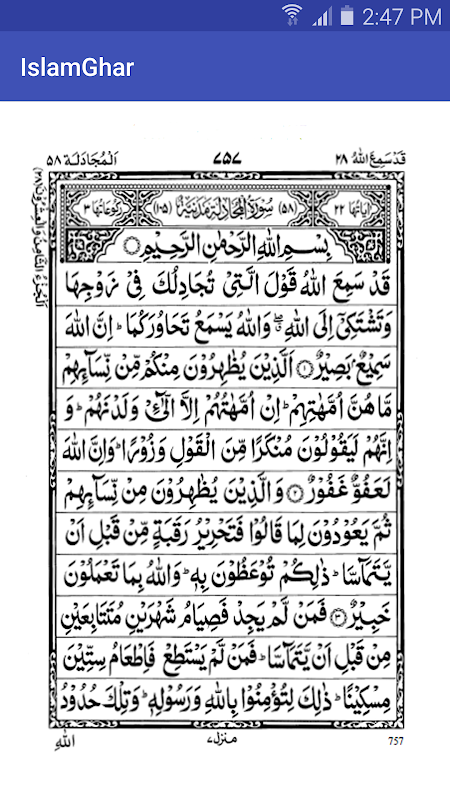 2:47 PM
IslamGhar
قَدْ سَمِعَ اللّٰهُ ٢٨ ٧٥٧ اَلْمُجَادَلَة ٥٨
اٰيَاتُهَا ٢٢ (٥٨) سُوْرَةُ الْمُجَادَلَةِ مَدَنِيَّةٌ (١٠٥) رُكُوْعَاتُهَا ٣
بِسْمِ اللّٰهِ الرَّحْمٰنِ الرَّحِيْمِ
قَدْ سَمِعَ اللّٰهُ قَوْلَ الَّتِيْ تُجَادِلُكَ فِيْ زَوْجِهَا
وَتَشْتَكِيْٓ اِلَى اللّٰهِ ۖ وَاللّٰهُ يَسْمَعُ تَحَاوُرَكُمَا ؕ اِنَّ اللّٰهَ
سَمِيْعٌۢ بَصِيْرٌ ﴿١﴾ اَلَّذِيْنَ يُظٰهِرُوْنَ مِنْكُمْ مِّنْ نِّسَآىِٕهِمْ
مَّا هُنَّ اُمَّهٰتِهِمْ ؕ اِنْ اُمَّهٰتُهُمْ اِلَّا الّٰٓـِٔيْ وَلَدْنَهُمْ ؕ وَ
اِنَّهُمْ لَيَقُوْلُوْنَ مُنْكَرًا مِّنَ الْقَوْلِ وَزُوْرًا ؕ وَاِنَّ اللّٰهَ
لَعَفُوٌّ غَفُوْرٌ ﴿٢﴾ وَالَّذِيْنَ يُظٰهِرُوْنَ مِنْ نِّسَآىِٕهِمْ
ثُمَّ يَعُوْدُوْنَ لِمَا قَالُوْا فَتَحْرِيْرُ رَقَبَةٍ مِّنْ قَبْلِ اَنْ
يَّتَمَآسَّا ؕ ذٰلِكُمْ تُوْعَظُوْنَ بِهٖ ؕ وَاللّٰهُ بِمَا تَعْمَلُوْنَ
خَبِيْرٌ ﴿٣﴾ فَمَنْ لَّمْ يَجِدْ فَصِيَامُ شَهْرَيْنِ مُتَتَابِعَيْنِ
مِنْ قَبْلِ اَنْ يَّتَمَآسَّا ؕ فَمَنْ لَّمْ يَسْتَطِعْ فَاِطْعَامُ سِتِّيْنَ
مِسْكِيْنًا ؕ ذٰلِكَ لِتُؤْمِنُوْا بِاللّٰهِ وَرَسُوْلِهٖ ؕ وَتِلْكَ حُدُوْدُ
757 منزل ٧ اللّٰهِ
اَلْجُزْءُ الثَّامِنُ وَالْعِشْرُوْنَ (٢٨)